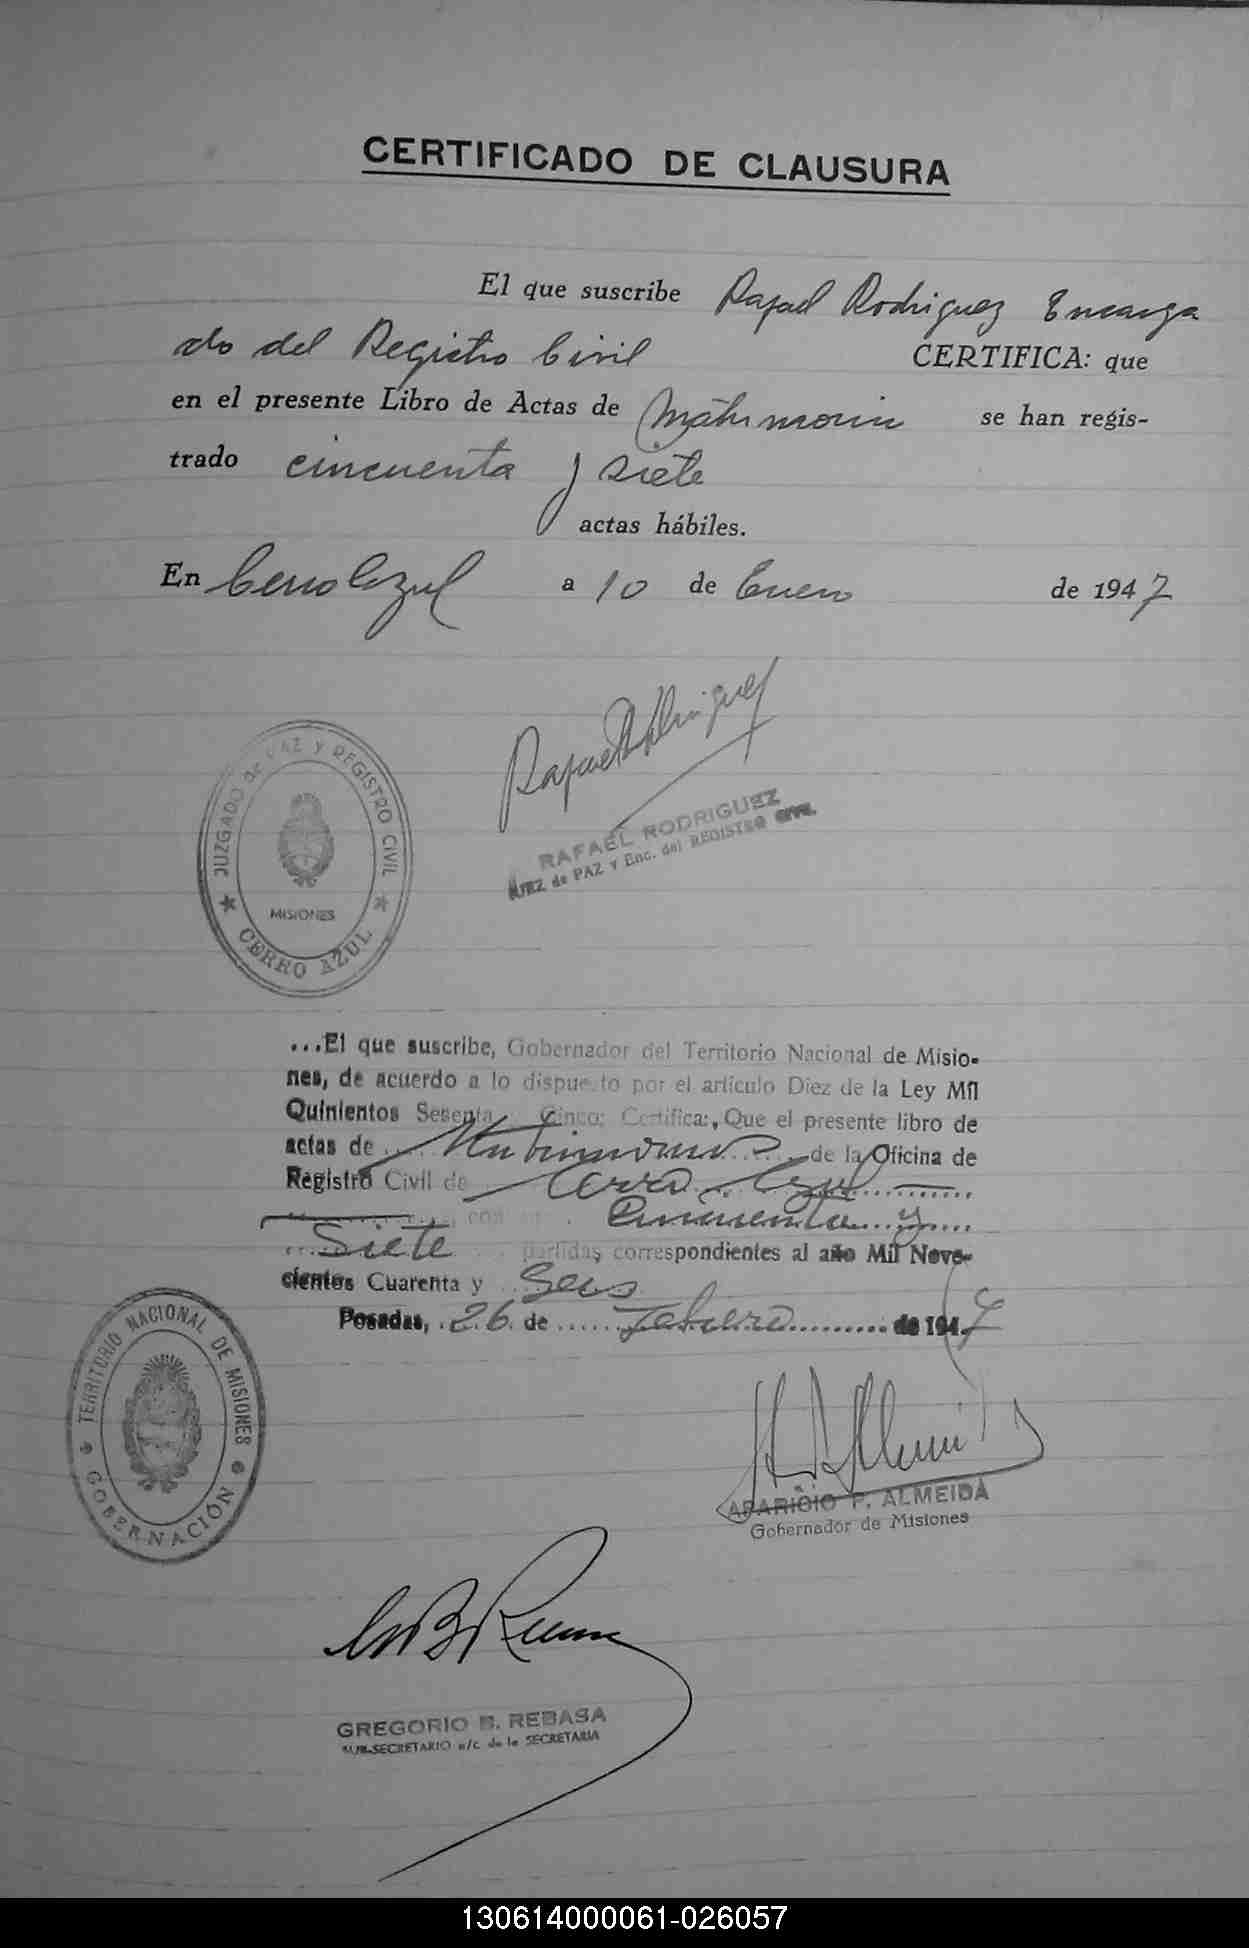 CERTIFICADO DE CLAUSURA
El que suscribe Rafael Rodriguez Encarga
do del Registro Civil CERTIFICA: que
en el presente Libro de Actas de Matrimonio se han regis-
trado cincuenta y siete
actas hábiles.
En Cerro Azul a 10 de Enero de 1947
Rafael Rodriguez
RAFAEL RODRIGUEZ
JUEZ de PAZ Y Enc. del REGISTRO CIVIL
JUZGADO de PAZ Y REGISTRO CIVIL
MISIONES
CERRO AZUL
...El que suscribe, Gobernador del Territorio Nacional de Misio-
nes, de acuerdo a lo dispuesto por el artículo Diez de la Ley Mil
Quinientos Sesenta Cinco: Certifica:, Que el presente libro de
actas de Matrimonios de la Oficina de
Registro Civil de Cerro Azul
con Cincuenta y
Siete partidas correspondientes al año Mil Nove-
cientos Cuarenta y Seis
Posadas, 26 de Febrero de 1947
TERRITORIO NACIONAL DE MISIONES
GOBERNACIÓN
APARICIO P. ALMEIDA
Gobernador de Misiones
GREGORIO B. REBASA
SUB-SECRETARIO a/c. de la SECRETARIA
130614000061-026057